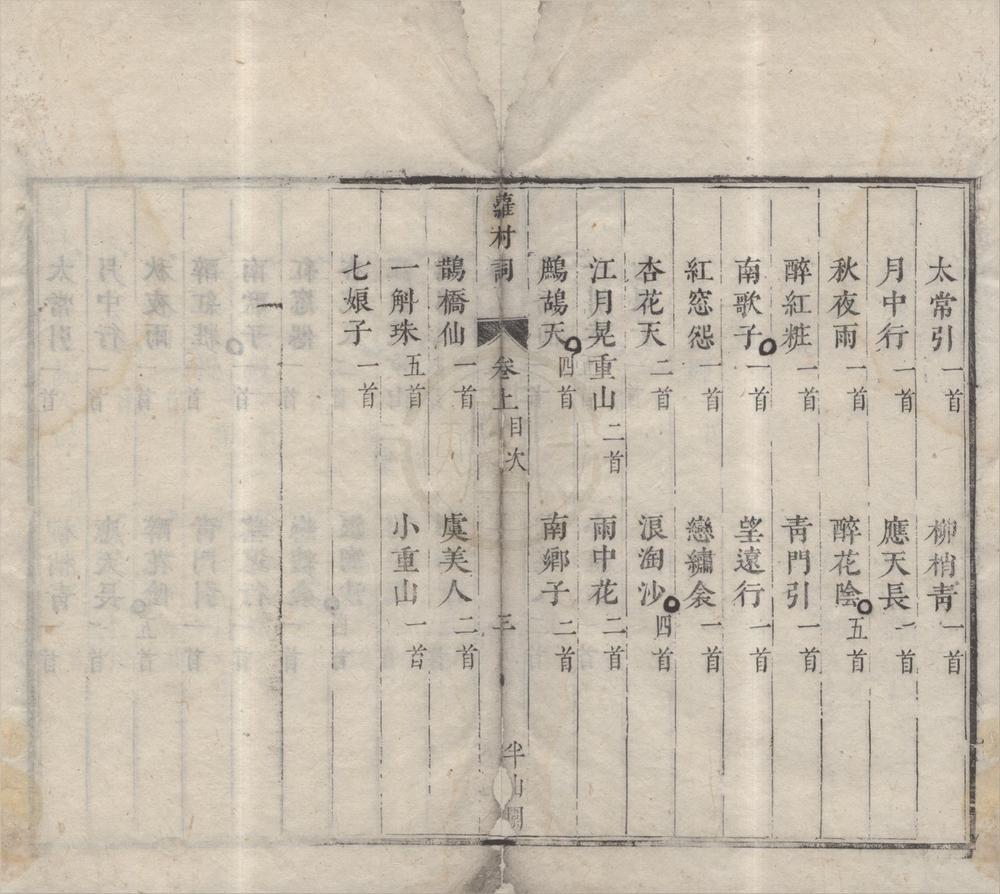 太常引一首 柳梢靑一首
月中行一首 應天長一首
秋夜雨一首 醉花陰五首
醉紅粧一首 靑門引一首
南歌子一首 望遠行一首
紅窓怨一首 戀繡衾一首
杏花天二首 浪淘沙四首
江月晃重山二首 雨中花二首
鷓鴣天四首 南鄉子二首
蘿村詞 卷上目次 三 半山閣
鵲橋仙一首 虞美人二首
一斛珠五首 小重山一首
七娘子一首